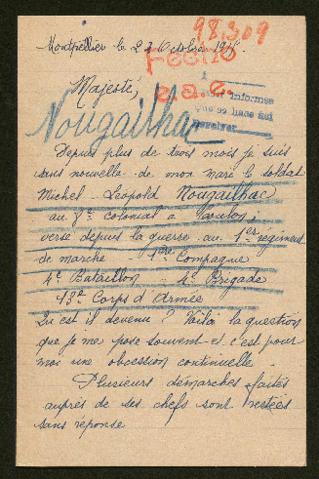 98.309
Montpellier le 2 Octobre 191
Fecho
a.a.c.
informes
que se hace
Majesté,
Nougailhac
Depuis plus de trois mois je suis
sans nouvelle de mon mari le soldat
Michel - Léopold Nougailhac
au 8e colonial à Toulon,
versé depuis la guerre au 1er régiment
de marche 1ère Compagnie
4e Bataillon 2e Brigade
13e Corps d'Armée
Qu'est il devenu ? Voilà la question
que je me pose souvent et c'est pour
moi une obcession continuelle.
Plusieurs démarches faites
auprès de ses chefs sont restées
sans réponse